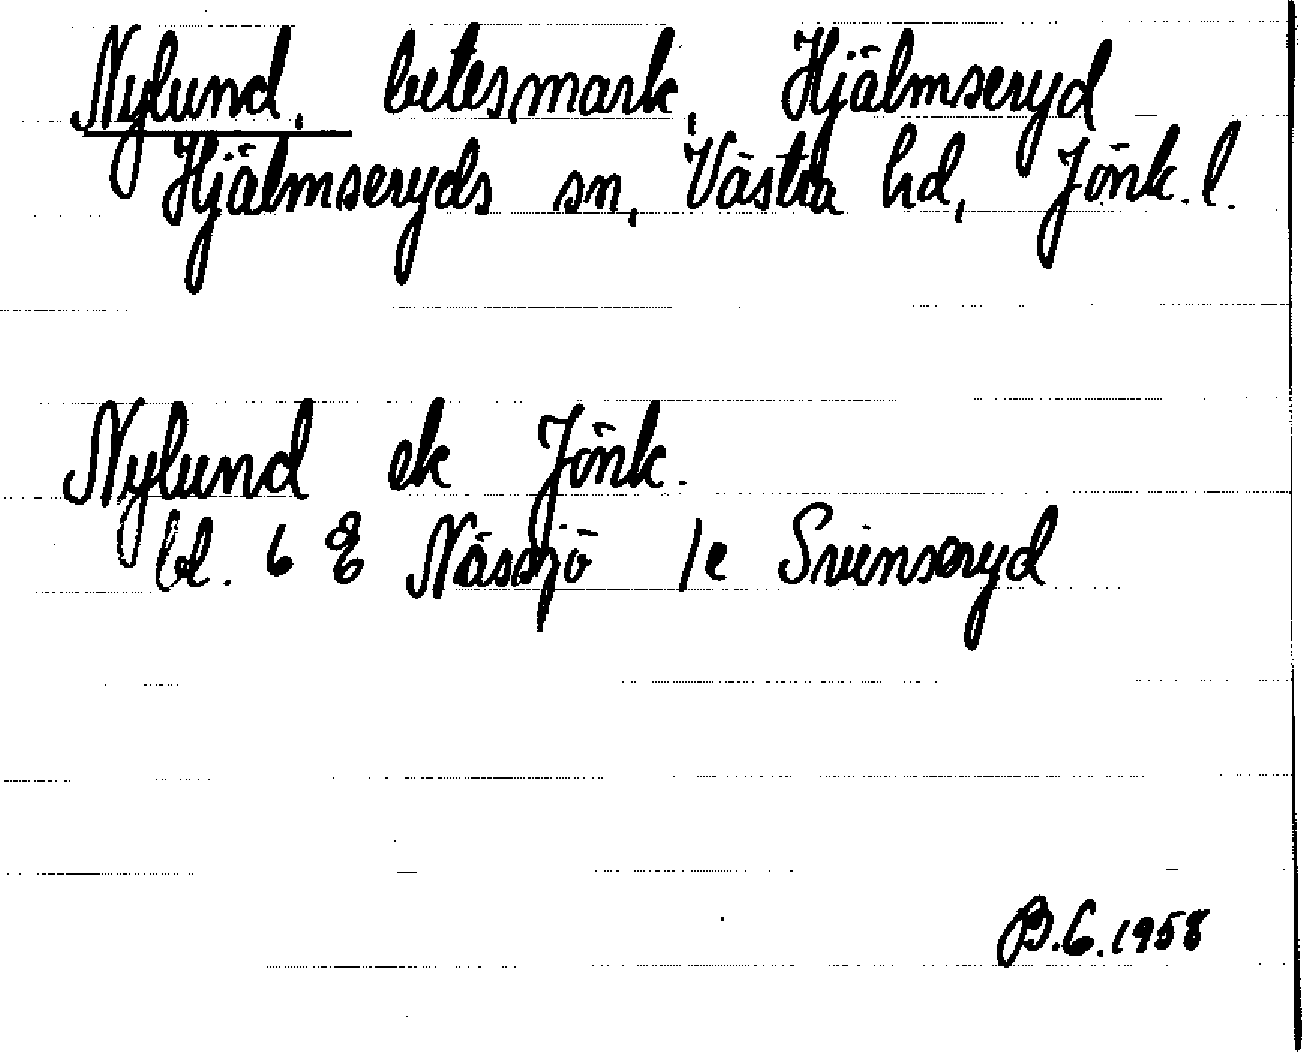 Nylund, betesmark, Hjälmseryd
Hjälmseryds sn, Västra hd, Jönk. l.
Nylund ek Jönk.
bl. 6 8 Nässjö 1e Svenseryd
B.G. 1958